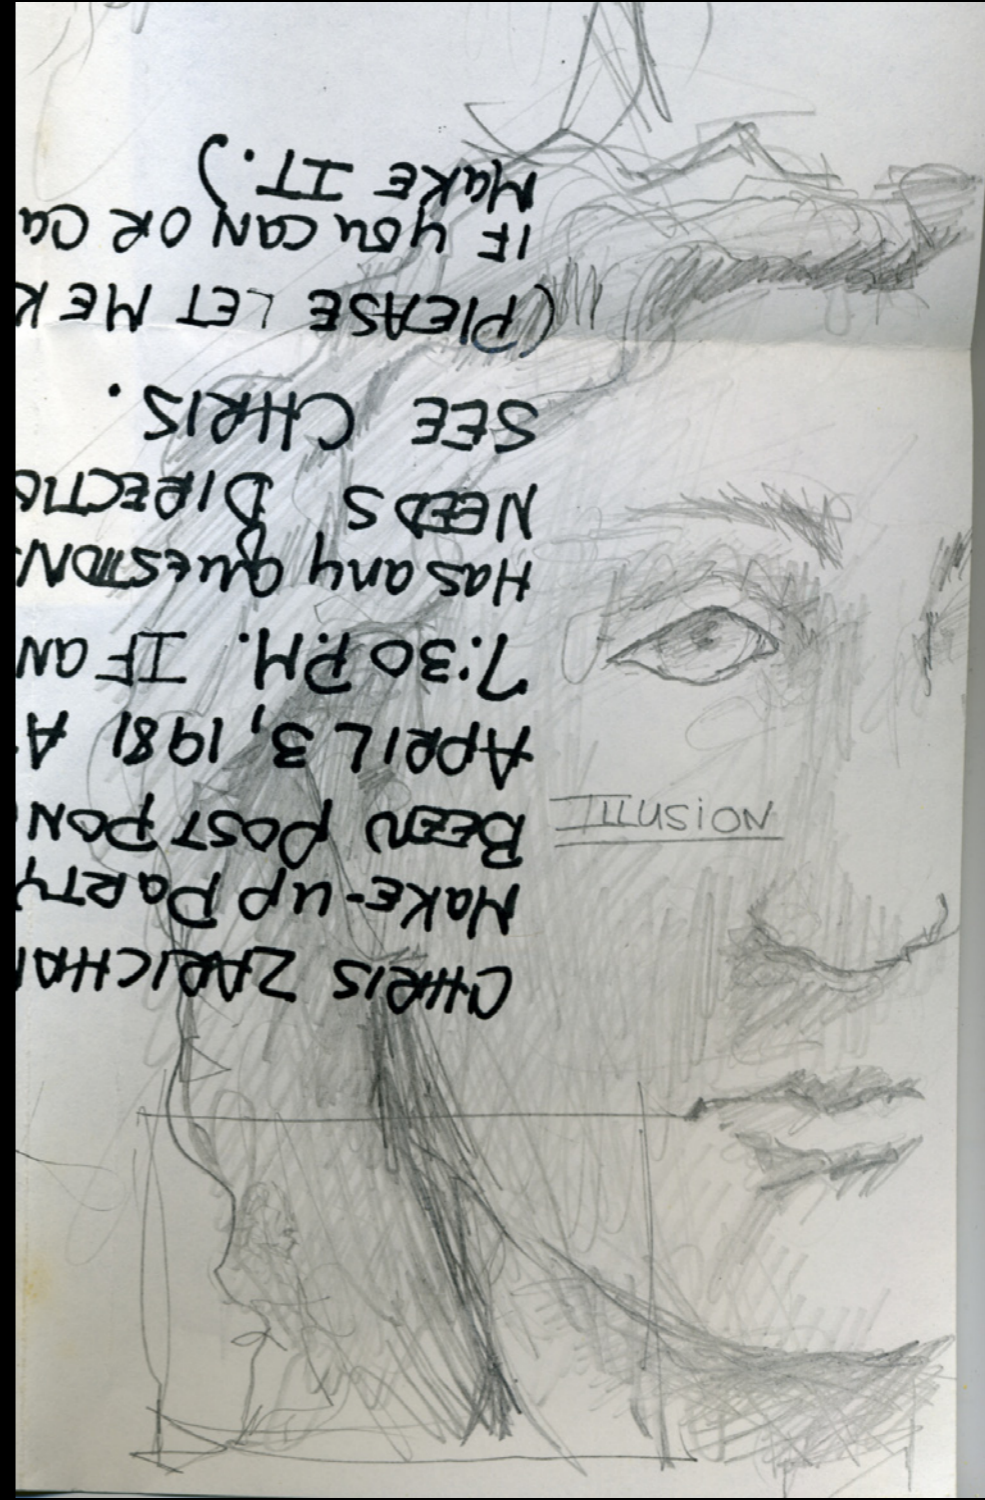 CHRIS ZARICHA
MaKE-up PaRTY
BEEN POSTPON
APRIL 3, 1981 A
7:30 P.M. IF aN
Has any QuESTION
NEEDS DIRECTIO
SEE CHRIS.
(PlEASE LET ME K
IF you CaN OR Ca
MaKE IT.)
ILLUSiON